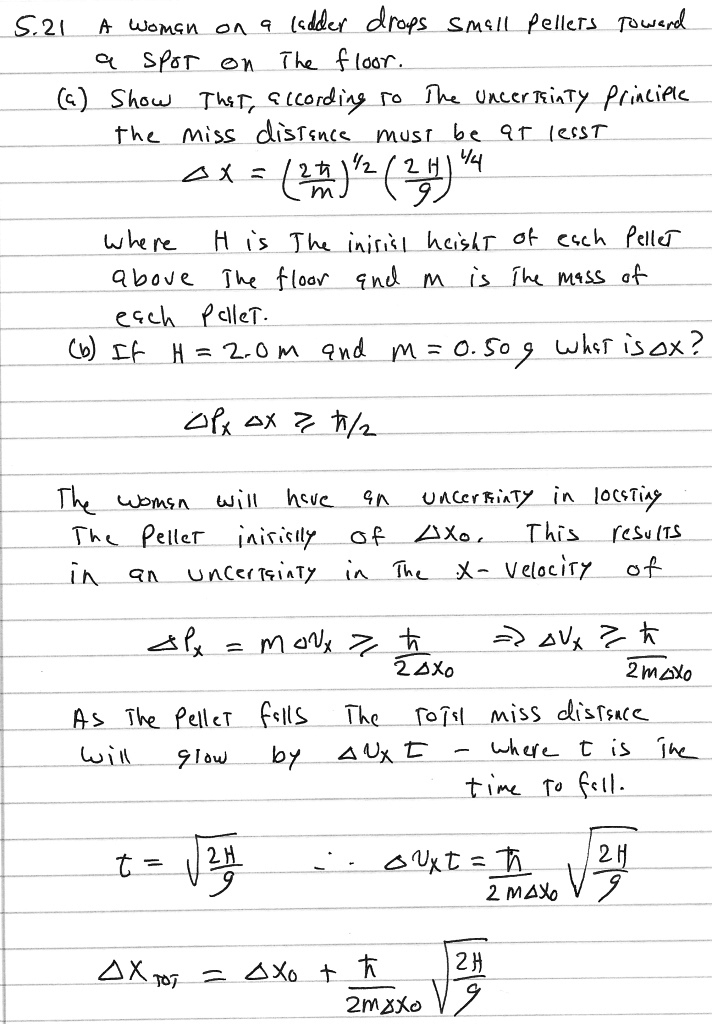 5.21 A woman on a ladder drops small pellets toward
a spot on the floor.
(a) Show that, according to the uncertainty principle
the miss distance must be at least
Δx = (2ħ/m)^1/2 (2H/g)^1/4
where H is the initial height of each pellet
above the floor and m is the mass of
each pellet.
(b) If H = 2.0 m and m = 0.50 g what is Δx?
ΔPx Δx ≥ ħ/2
The woman will have an uncertainty in locating
the pellet initially of Δx₀. This results
in an uncertainty in the x-velocity of
ΔPx = mΔVx ≥ ħ/2Δx₀ ⇒ ΔVx ≥ ħ/2mΔx₀
As the pellet falls the total miss distance
will grow by ΔVx t – where t is the
time to fall.
t = √(2H/g) ∴ ΔVx t = ħ/2mΔx₀ √(2H/g)
ΔX TOT = Δx₀ + ħ/2mΔx₀ √(2H/g)